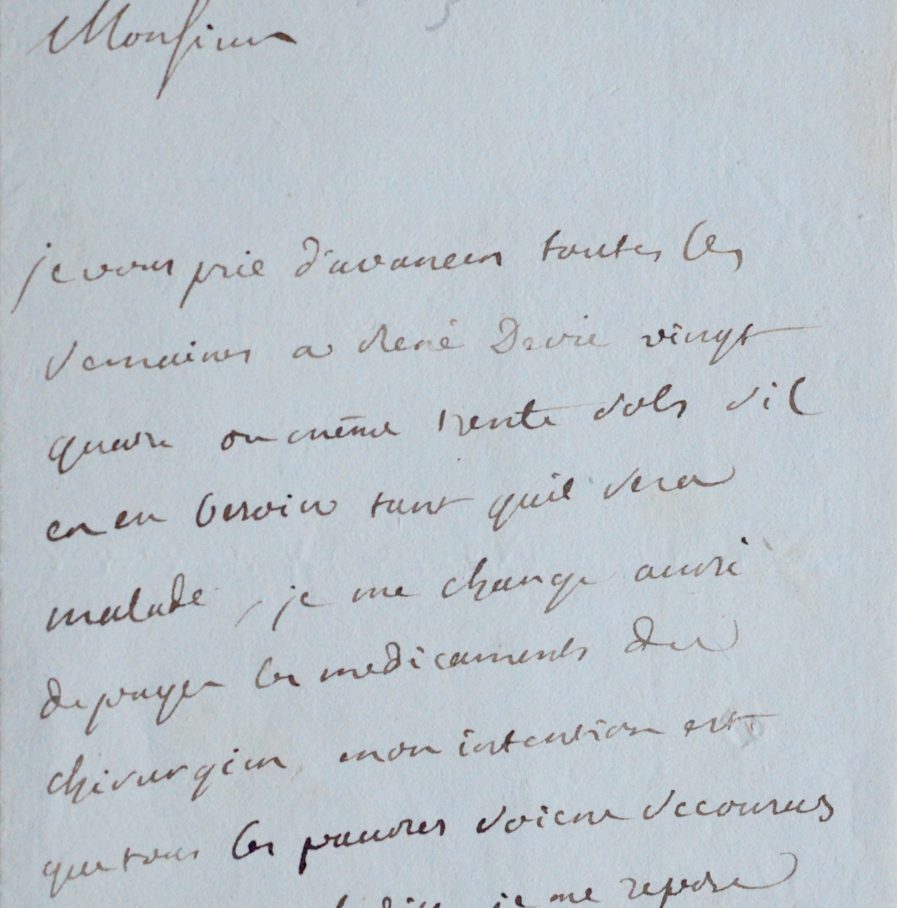 Monsieur
je vous prie d'avancer toutes les
semaines a René Devie vingt
quatre ou même trente sols s'il
en en besoin tant quil sera
malade, je me charge aussi
de payer les medicaments du
chirurgien mon intention est
que tous les pauvres soient secourus
je me repose